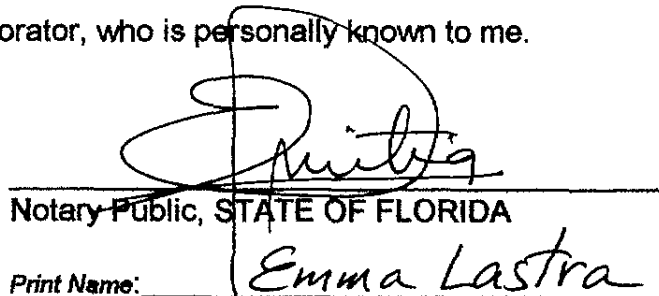 orator, who is personally known to me.
Notary Public, STATE OF FLORIDA
Print Name: Emma Lastra